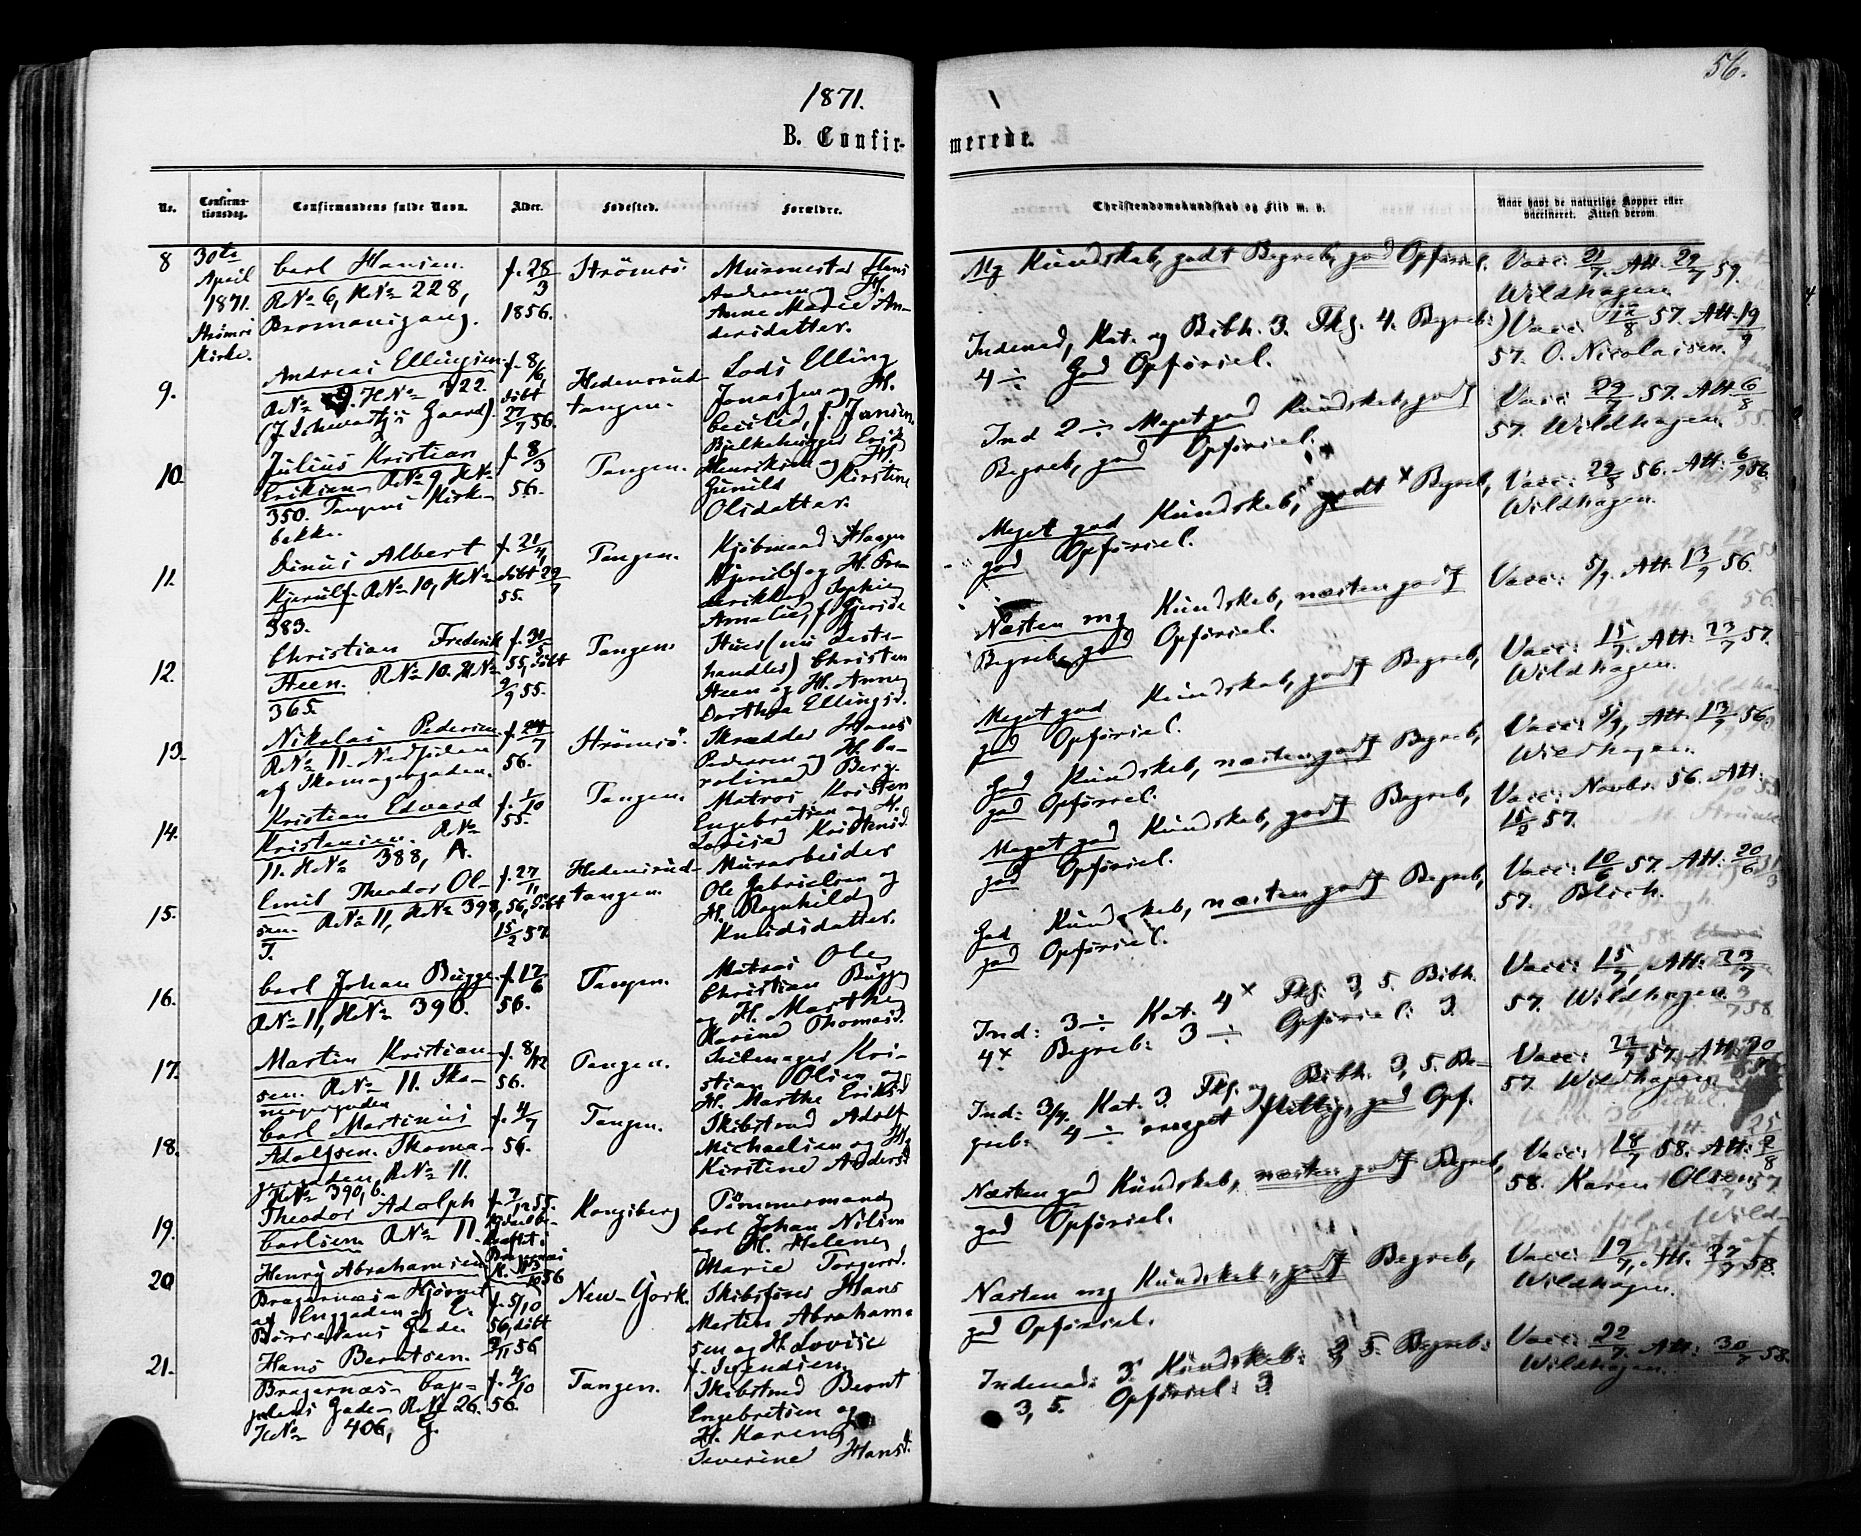 56.
1871.
B. Confirmerede.
No. Confirmationsdag. Confirmandens fulde Navn. Alder. Fødested. Forældre. Christendomskundskab og Flid m. v. Naar havt de naturlige Kopper eller vaccineret. Attest derom.
8 30te April 1871. Strømsø Kirke.
Carl Hansen.
R.No 6, H.No 228,
Bromansgang.
f. 28/3
1856.
Strømsø.
Murmester Hans
Andersen og H.
Anne Marie An-
dersdatter.
Mg Kundskab, godt Begreb, god Opførsel.
Vacc: 21/7. Att. 29/7 59.
Wildhagen.
9.
Andreas Ellingsen.
R.No 9. H.No 322.
(J. Schwartz's Gaard).
f. 8/6,
døbt
27/7 56.
Hedensrud-
tangen.
Lods Elling
Jonassen og H.
Cecilia, f. Jansen.
Indenad, Kat. og Bibh. 3. Fkl. 4. Begreb:
4 ÷ God Opførsel.
Vacc: 12/8 57. Att. 19/9
57. O. Nicolaisen.
10.
Julius Kristian
Eriksen. R.No 9, H.No
350. Tangens Kirke-
bakke.
f. 8/3
56.
Tangen.
Bjelkehugger Erik
Henriksen og H.
Gunild Kirstine
Olsdatter.
Ind 2 ÷ Meget god Kundskab, godt
Begreb, god Opførsel.
Vacc: 29/7 57. Att 6/8
57. Wildhagen.
11.
Dinus Albert
Kjerulf. R.No 10, H.No
383.
f. 21/4,
døbt 29/7
55.
Tangen.
Kjøbmand Haagen
Kjerulf og H. Fre-
derikke Sophie
Amalie, f. Gjerdr
Meget god Kundskab, godt × Begreb,
god Opførsel.
Vacc: 29/8 56. Att: 6/9 56.
Wildhagen.
12.
Christian Frederik
Steen. R.No 10. H.No
365.
f. 30/5
55, døbt
9/9 55.
Tangen.
Stuer (nu Leste-
handler) Christen
Steen og H. Anne
Dorthea Ellingsd.
Næsten mg Kundskab, næsten godt
Begreb, god Opførsel.
Vacc: 5/9. Att. 13/9 56.
13.
Nikolai Pedersen.
R.No 11. Nedsiden
af Skomagergaden.
f. 24/7
56.
Strømsø.
Skrædder Hans
Pedersen og H. Ca-
roline Berg.
Meget god Kundskab, godt Begreb,
god Opførsel.
Vacc: 15/7. Att: 23/7 57.
Wildhagen.
14.
Kristian Edvard
Kristensen. R.No
11. H.No 388, A.
f. 1/10
55.
Tangen.
Matros Kristen
Engebretsen og H.
Lovise Kristensd.
God Kundskab, næsten godt Begreb,
god Opførsel.
Vacc: 5/9, Att: 13/9 56.
Wildhagen.
15.
Emil Theodor Ol-
sen. R.No 11, H.No 398,
f. 27/11
56, døbt
15/2 57.
Hedensrud-
tangen.
Murarbeider
Ole Gabrielsen og
H. Ragnhild
Knudsdatter.
Meget god Kundskab, godt Begreb,
god Opførsel.
Vacc: Novbr. 56. Att:
15/3 57.
16.
Carl Johan Bugge.
R.No 11, H.No 390.
f. 17/6
56.
Tangen.
Matros Ole
Christian Bugge
og H. Marthe
Karine Thomasd.
God Kundskab, næsten godt Begreb,
god Opførsel.
Vacc: 10/6 57. Att: 20/6
57. Blich.
17.
Martin Kristian-
sen. R.No 11. Sko-
magergaden
f. 8/12
56.
Tangen.
Seilmager Kri-
stian Olsen og
H. Marthe Eriksd
Ind: 3 ÷ Kat. 4× Fkl. 3, 5. Bibh.
4× Begreb: 3 ÷ Opførsel: 3.
Vacc: 15/7, Att: 23/7
57. Wildhagen.
18.
Carl Martinius
Adolfsen. Skoma-
gergaden, R.No 11.
H.No 390, b.
f. 4/7
56.
Tangen.
Skibstmd Adolf
Michaelsen og H.
Kirstine Andersd
Ind: 3/4. Kat. 3. Fkl. og Bibh. 3, 5. Be-
greb: 4 ÷ meget flittig, god Opf.
57. Wildhagen
19.
Theodor Adolph
Carlsen R.No 11.
f. 7/12 55.
Kongsberg
Tømmermand
Carl Johan Nilsen
og H. Helene
Marie Torgersd.
Næsten god Kundskab, næsten godt Begreb,
god Opførsel.
Vacc: 18/7 58. Att: 2/8
58. Karen Olsen.
20
Henry Abrahamsen
Bragernæs Hjørnet
af Enggaden og E.
Børresens Gade
f. 5/10
56, døbt
9/11 56
New-York.
Skibsfører Hans
Martin Abraham-
sen og H. Lovise
f. Svendsen.
Næsten mg Kundskab, godt Begreb,
god Opførsel.
Vacc: 19/7, Att. 27/7 58.
Wildhagen.
21.
Hans Berntsen.
Bragernæs- Cap-
pelens Gade- R.No 26.
H.No 406, G.
f. 4/10
56.
Tangen.
Skibstmd Bernt
Engebretsen og
H. Karen
Severine Hansd.
Indenad: 3. Kundskab: 3, 5. Begreb:
3, 5. Opførsel: 3
Vacc: 22/7. Att: 30/7 58.
Wildhagen.